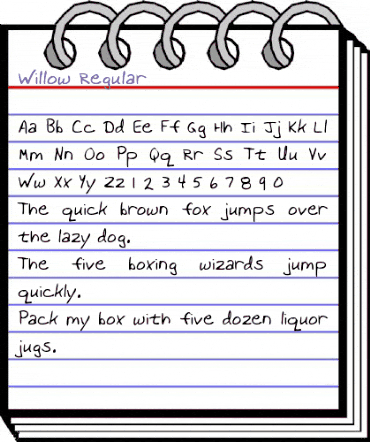 Willow Regular
Aa Bb Cc Dd Ee Ff Gg Hh Ii Jj Kk Ll
Mm Nn Oo Pp Qq Rr Ss Tt Uu Vv
Ww Xx Yy Zz 1 2 3 4 5 6 7 8 9 0
The quick brown fox jumps over
the lazy dog.
The five boxing wizards jump
quickly.
Pack my box with five dozen liquor
jugs.